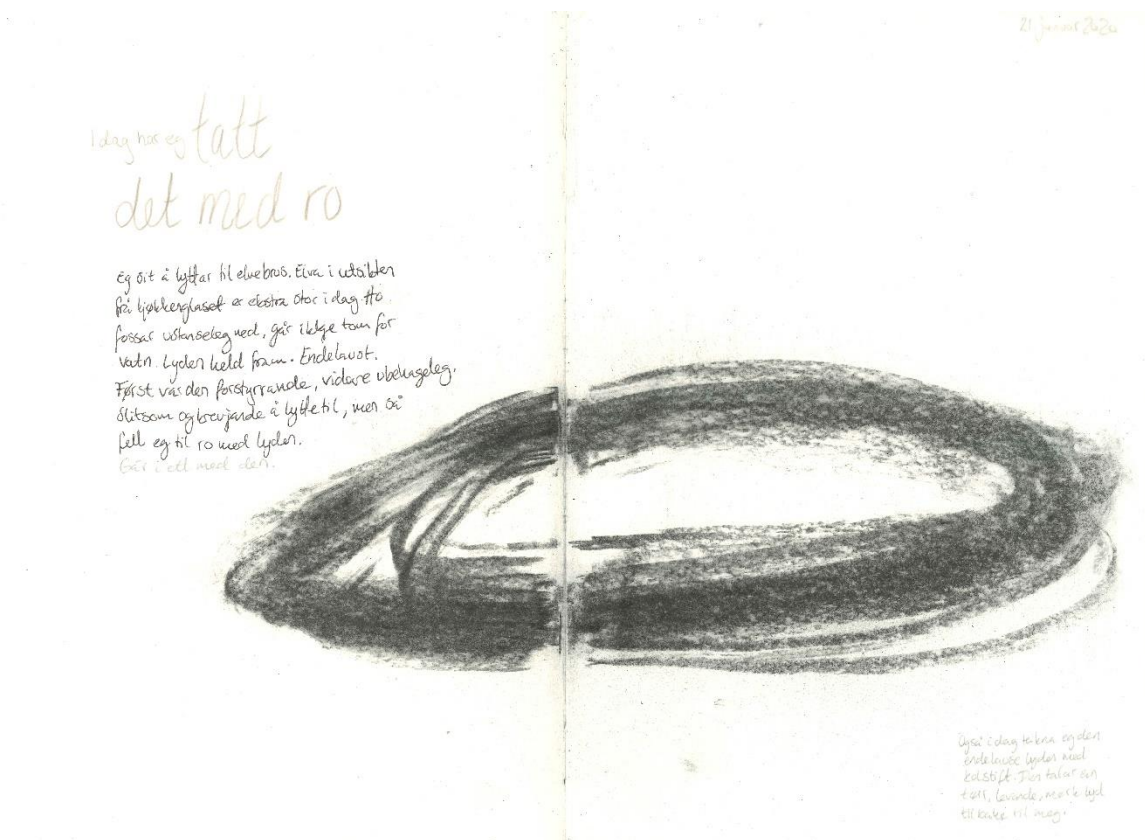 21. januar 2020
I dag har eg tatt
det med ro
Eg sit å lyttar til elvebrus. Elva i utsikten
frå kjøkkenglaset er ekstra stor i dag. Ho
fossar ustanseleg ned, går ikkje tom for
vatn. Lyden held fram. Endelaust.
Først var den forstyrrande, vidare ubehageleg.
Slitsom og krevjande å lytte til, men så
fell eg til ro med lyden.
Går i ett med den.
Også i dag teikna eg den
endelause lyden med
kolstift. Den talar ein
tørr, levande, mørk lyd
tilbake til meg.